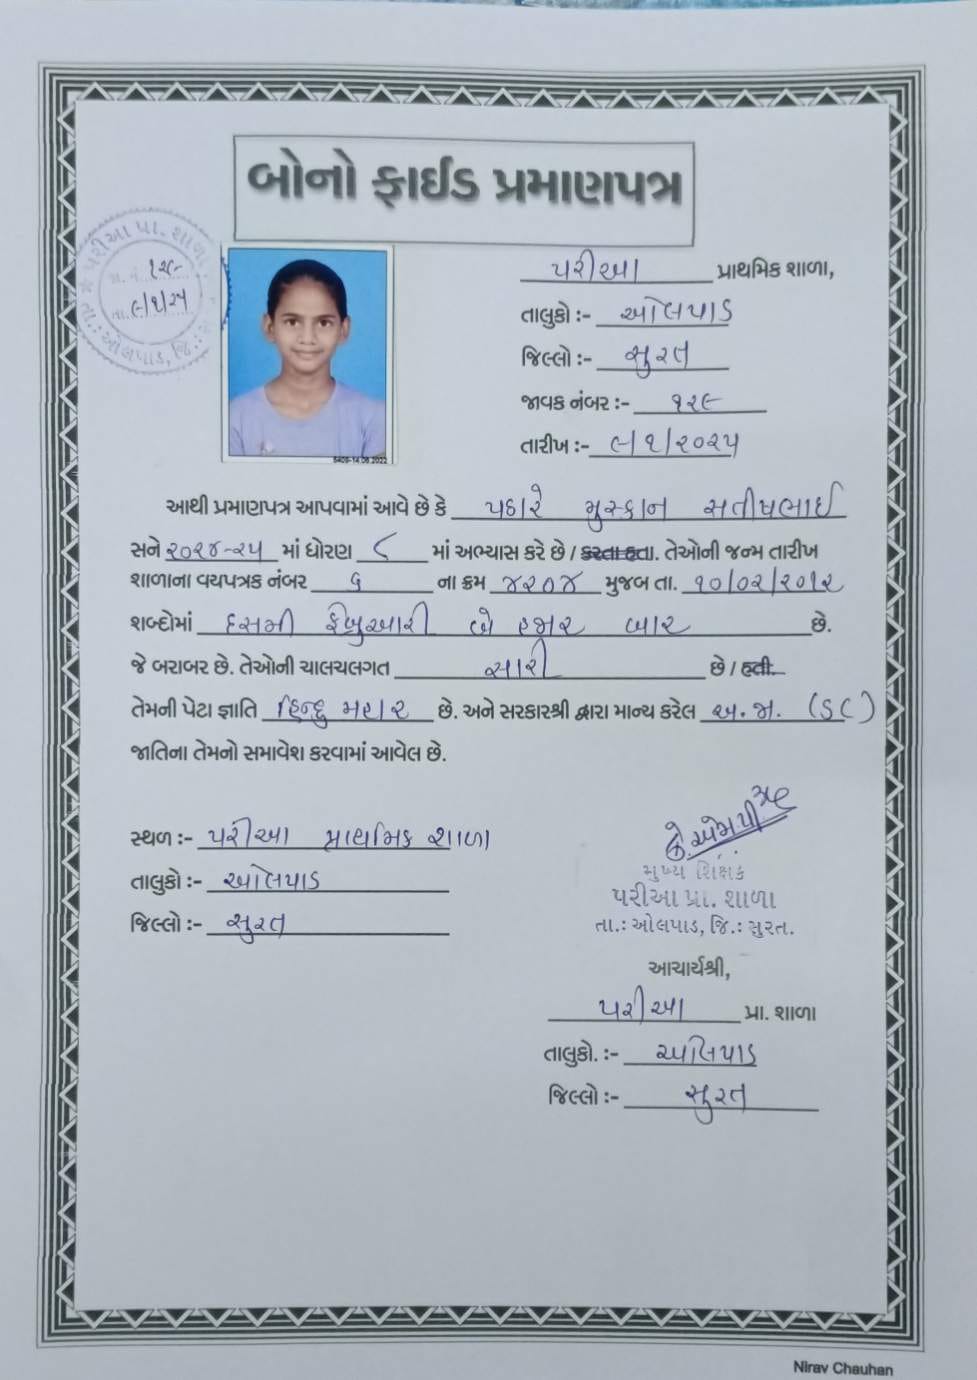 બોનો ફાઈડ પ્રમાણપત્ર
પરીઆ પ્રા. શાળા
૧૨૯
તા. ૯/૧/૨૫
તા.: ઓલપાડ, જિ.
પરીઆ પ્રાથમિક શાળા,
તાલુકો :- ઓલપાડ
જિલ્લો :- સુરત
જાવક નંબર :- ૧૨૯
તારીખ :- ૯/૧/૨૦૨૫
5409-14.08.2022
આથી પ્રમાણપત્ર આપવામાં આવે છે કે પઠારે મુસ્કાન સતીષભાઈ
સને ૨૦૨૪-૨૫ માં ધોરણ ૮ માં અભ્યાસ કરે છે / કરતા હતા. તેઓની જન્મ તારીખ
શાળાના વયપત્રક નંબર ૬ ના ક્રમ ૪૨૦૪ મુજબ તા. ૧૦/૦૨/૨૦૧૨
શબ્દોમાં દસમી ફેબ્રુઆરી બે હજાર બાર છે.
જે બરાબર છે. તેઓની ચાલચલગત સારી છે / હતી.
તેમની પેટા જ્ઞાતિ હિન્દુ મહાર છે. અને સરકારશ્રી દ્વારા માન્ય કરેલ અ.જા. (SC)
જાતિના તેમનો સમાવેશ કરવામાં આવેલ છે.
સ્થળ :- પરીઆ પ્રાથમિક શાળા
તાલુકો :- ઓલપાડ
જિલ્લો :- સુરત
મુખ્ય શિક્ષક
પરીઆ પ્રા. શાળા
તા.: ઓલપાડ, જિ.: સુરત.
આચાર્યશ્રી,
પરીઆ પ્રા. શાળા
તાલુકો. :- ઓલપાડ
જિલ્લો :- સુરત
Nirav Chauhan